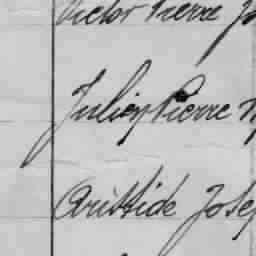 Victor Pierre Jo
Julien Pierre
Aristide Josep